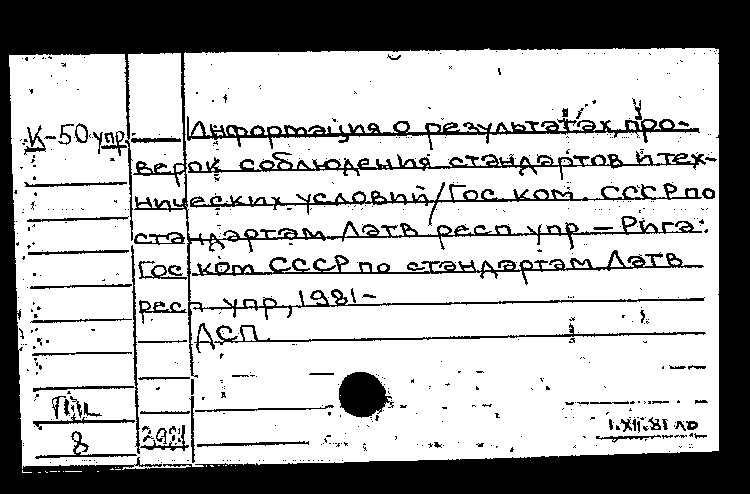 К-50 упр. Информация о результатах про-
верок соблюдения стандартов и тех-
нических условий/Гос ком. СССР по
стандартам Латв респ упр — Рига:
Гос ком СССР по стандартам Латв
респ упр, 1981-
ДСП.
8
1.XII.81 ЛО